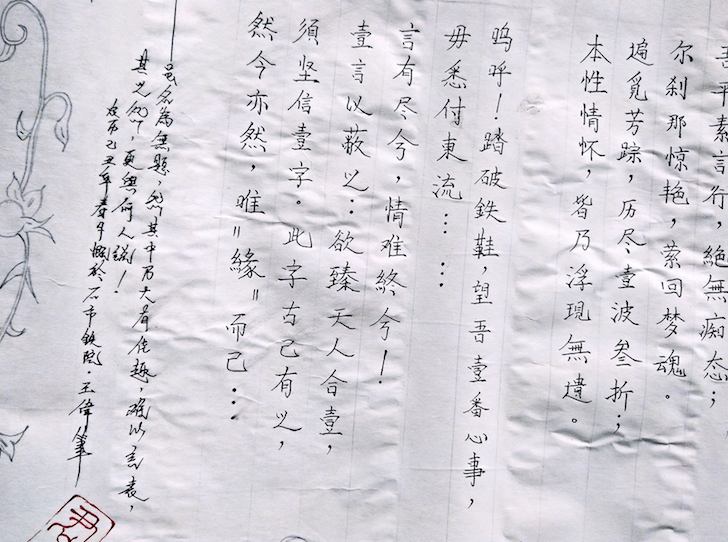 吾平素言行，絕無痴态；
尔刹那惊艳，萦回梦魂。
遍觅芳踪，历尽壹波叁折；
本性情怀，皆乃浮現無遺。
呜呼！踏破鉄鞋，望吾壹番心事，
毋悉付東流……
言有尽兮，情难終兮！
壹言以蔽之：欲臻天人合壹，
須坚信壹字。此字古已有之，
然今亦然，唯"緣"而已…
虽名為無题，然其中乃大有佳趣，难以言表，
其义几何，更與何人説！
己丑年春午
石市鉄院·王偉筆